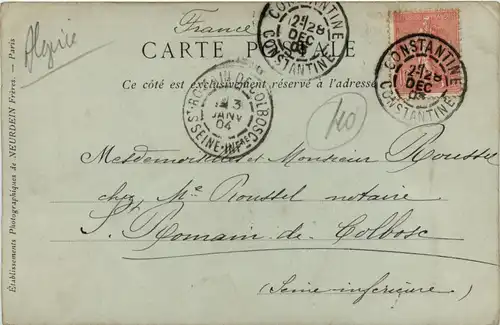 Algérie
France
CARTE POSTALE
Ce côté est exclusivement réservé à l'adresse
CONSTANTINE
28
DEC
03
CONSTANTINE
CONSTANTINE
28
DEC
03
CONSTANTINE
ST ROMAIN DE COLBOSC
3
JANV
04
SEINE-INFRE
40
Mesdemoiselles et Monsieur Roussel
chez Me Roussel notaire
St. Romain-de-Colbosc
(Seine-inférieure)
Etablissements Photographiques de NEURDEIN Frères. — Paris